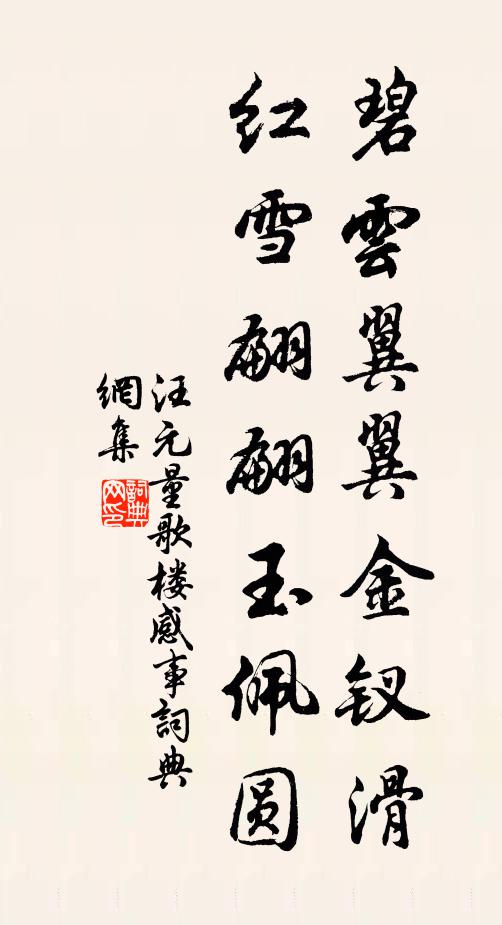 碧雲翼翼金钗滑
红雪翩翩玉佩圆
汪元量歌楼感事詞典
網集
詞典
网印